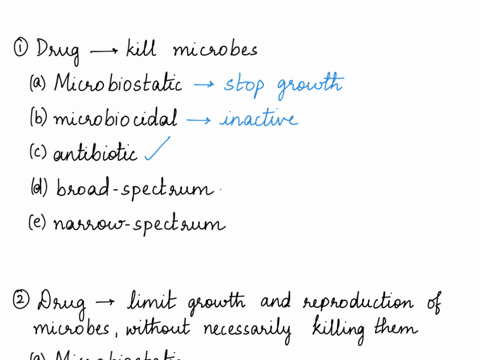 ① Drug → kill microbes
(a) Microbiostatic → stop growth
(b) microbiocidal → inactive
(c) antibiotic ✓
(d) broad-spectrum
(e) narrow-spectrum
② Drug → limit growth and reproduction of
microbes, without necessarily killing them
(a) Microbiostatic